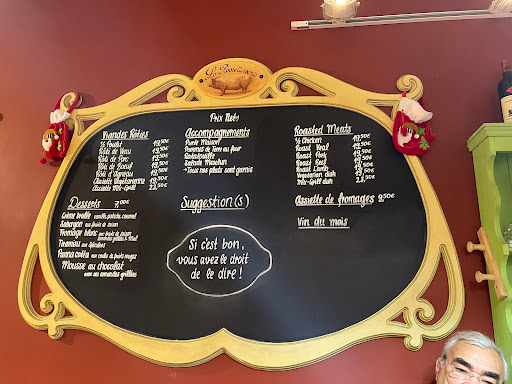 Prix Nets
Viandes Rôties
½ Poulet 19,50€
Rôti de Veau 19,50€
Rôti de Porc 19,50€
Rôti de Boeuf 19,50€
Rôti d'Agneau 19,50€
Assiette Végétarienne
Assiette Mix-Grill
Desserts 7,00€
Crème brûlée vanille, pistache, caramel
Sabayon aux fruits de saison
Fromage blanc
Tiramisu aux spéculoos
Panna cotta aux coulis de fruits rouges
Mousse au chocolat
avec ses amandes grillées
Accompagnements
Purée Maison
Pommes de Terre au four
Ratatouille
Salade Mesclun
Tous nos plats sont garnis
Suggestion(s)
Si c'est bon,
vous avez le droit
de le dire !
Roasted Meats
½ Chicken 19,50€
Roast Veal 19,50€
Roast Pork 19,50€
Roast Beef 19,50€
Roast Lamb 19,50€
Vegetarian dish
Mix-Grill dish
Assiette de fromages 9,50€
Vin du mois